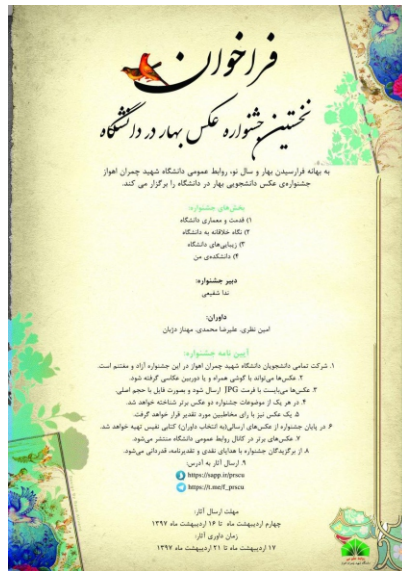 فراخوان
نخستین جشنواره عکس بهار در دانشگاه
به بهانه فرارسیدن بهار و سال نو، روابط عمومی دانشگاه شهید چمران اهواز
جشنواره‌ی عکس دانشجویی بهار در دانشگاه را برگزار می کند.
بخش‌های جشنواره:
۱) قدمت و معماری دانشگاه
۲) نگاه خلاقانه به دانشگاه
۳) زیبایی‌های دانشگاه
۴) دانشکده‌ی من
دبیر جشنواره:
ندا شفیعی
داوران:
امین نظری، علیرضا محمدی، مهناز دژبان
آیین نامه جشنواره:
۱. شرکت تمامی دانشجویان دانشگاه شهید چمران اهواز در این جشنواره آزاد و مغتنم است.
۲. عکس‌ها می‌تواند با گوشی همراه و یا دوربین عکاسی گرفته شود.
۳. عکس‌ها می‌بایست با فرمت JPG ارسال شود و بصورت فایل با حجم اصلی.
۴. در هر یک از موضوعات جشنواره دو عکس برتر شناخته خواهد شد.
۵. یک عکس نیز با رای مخاطبین مورد تقدیر قرار خواهد گرفت.
۶. در پایان جشنواره از عکس‌های ارسالی(به انتخاب داوران) کتابی نفیس تهیه خواهد شد.
۷. عکس‌های برتر در کانال روابط عمومی دانشگاه منتشر می‌شود.
۸. از برگزیدگان جشنواره با هدایای نقدی و تقدیرنامه، قدردانی می‌شود.
۹. ارسال آثار به آدرس:
https://sapp.ir/prscu
https://t.me/f_prscu
مهلت ارسال آثار:
چهارم اردیبهشت ماه تا ۱۶ اردیبهشت ماه ۱۳۹۷
زمان داوری آثار:
۱۷ اردیبهشت ماه تا ۲۱ اردیبهشت ماه ۱۳۹۷